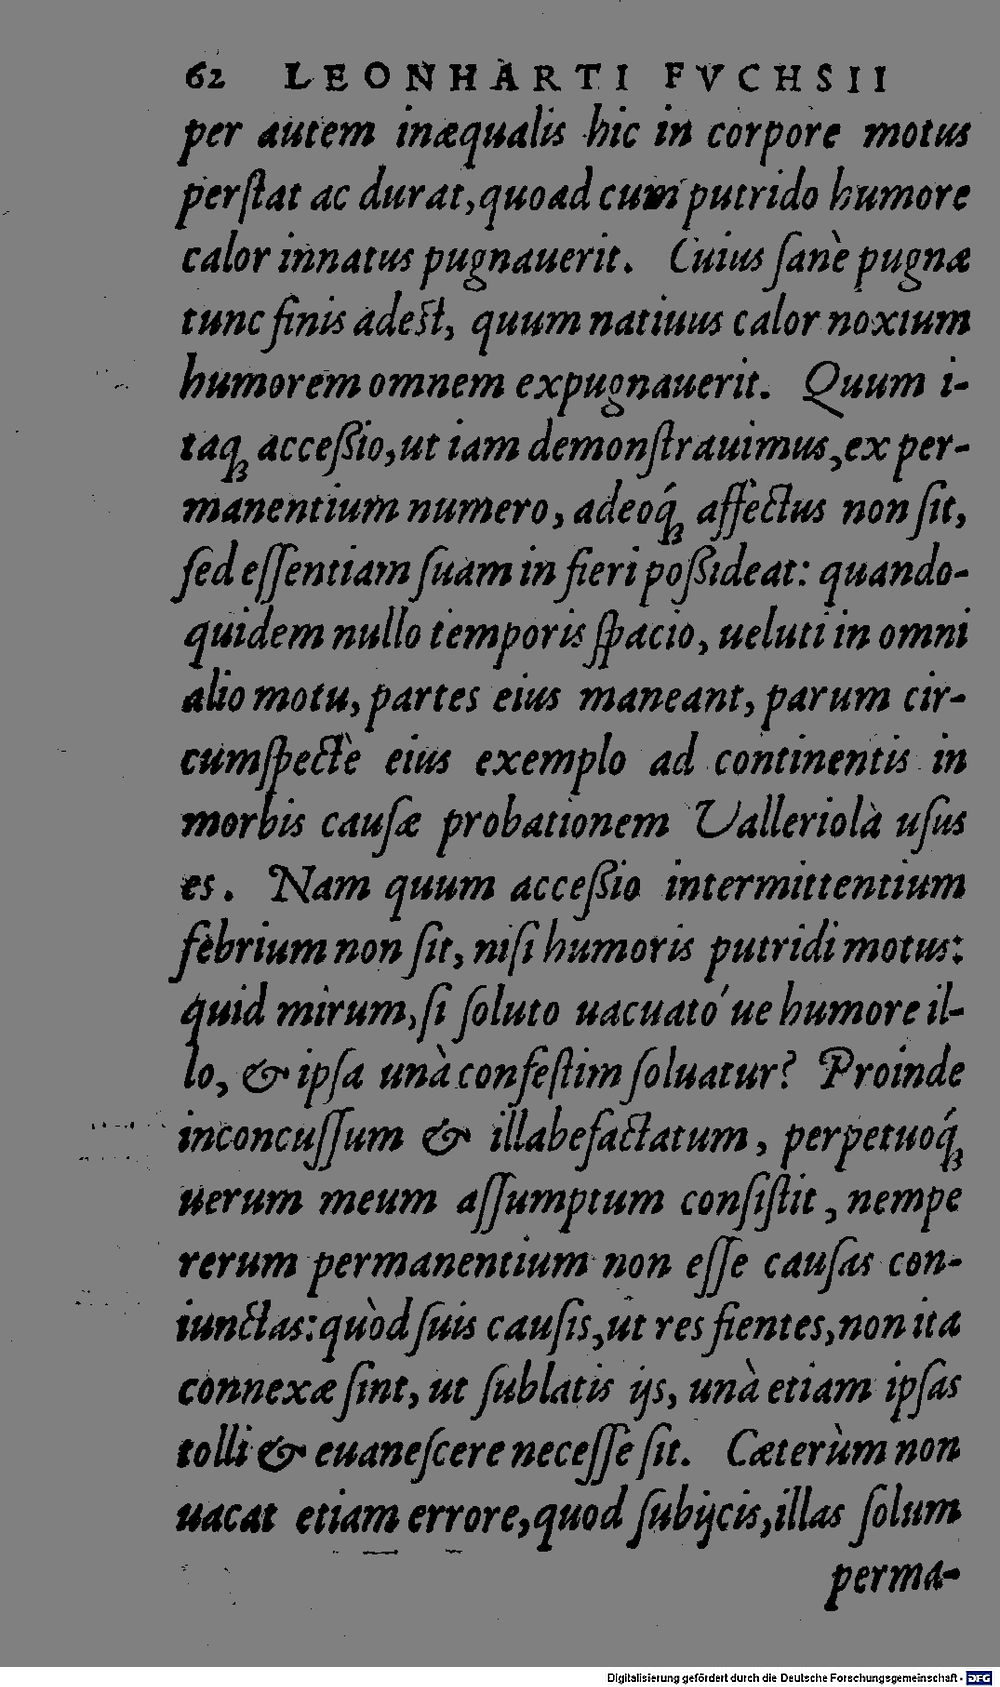 62 LEONHARTI FVCHSII
per autem inæqualis hic in corpore motus
perſtat ac durat, quoad cum putrido humore
calor innatus pugnauerit. Cuius ſanè pugnæ
tunc finis adest, quum natiuus calor noxium
humorem omnem expugnauerit. Quum i-
taqꝫ acceßio, ut iam demonſtrauimus, ex per-
manentium numero, adeoq́ꝫ affectus non ſit,
ſed eſſentiam ſuam in fieri poßideat: quando-
quidem nullo temporis ſpacio, ueluti in omni
alio motu, partes eius maneant, parum cir-
cumſpectè eius exemplo ad continentis in
morbis cauſæ probationem Valleriolà uſus
es. Nam quum acceßio intermittentium
febrium non ſit, niſi humoris putridi motus:
quid mirum, ſi ſoluto uacuató ue humore il-
lo, & ipſa unà confeſtim ſoluatur? Proinde
inconcuſſum & illabefactatum, perpetuoq́ꝫ
uerum meum aſſumptum conſiſtit, nempe
rerum permanentium non eſſe cauſas con-
iunctas: quòd ſuis cauſis, ut res fientes, non ita
connexæ ſint, ut ſublatis ijs, unà etiam ipſas
tolli & euaneſcere neceſſe ſit. Cæterùm non
uacat etiam errore, quod ſubijcis, illas ſolum
perma-
Digitalisierung gefördert durch die Deutsche Forschungsgemeinschaft - DFG